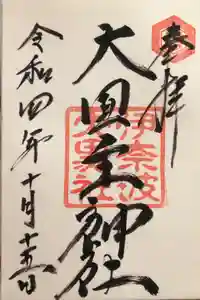 奉拝
大国主神社
伊奈波
大黒社
令和四年十月十五日